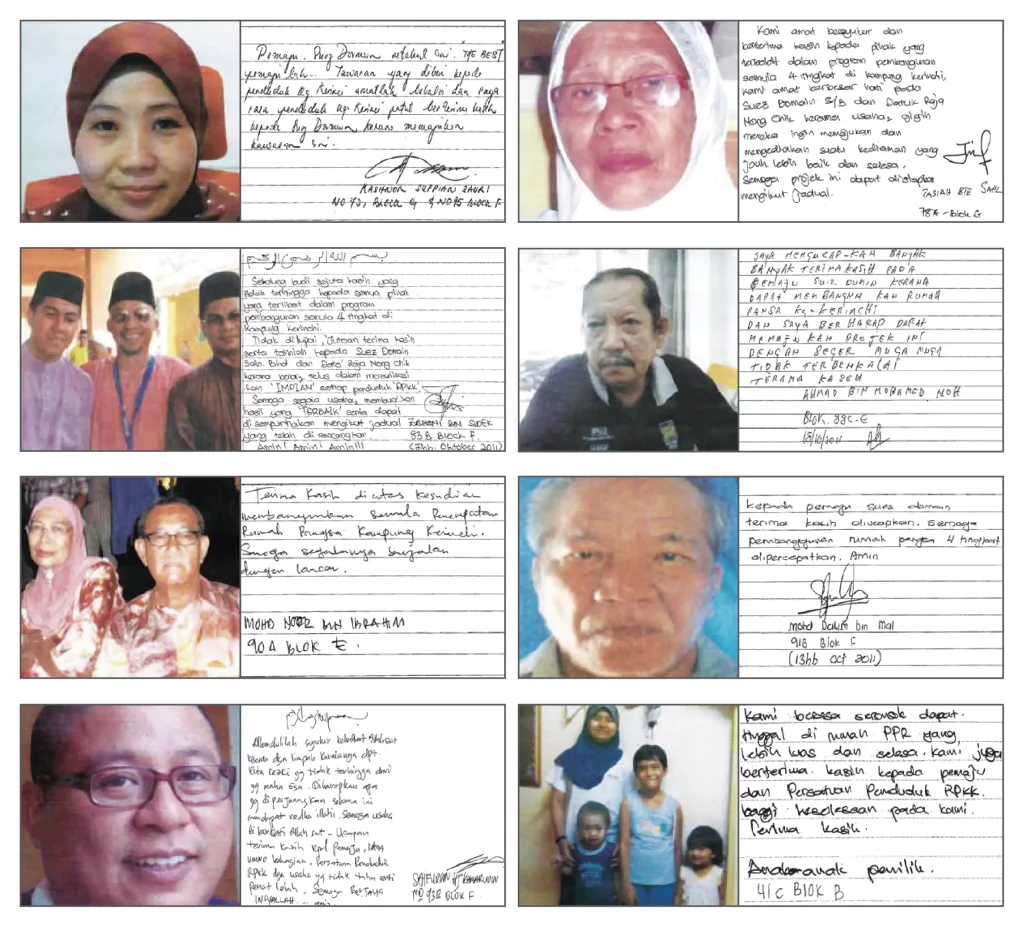 Pemaju, Suez Domain memang THE BEST
pemaju lah... Tawaran yang diberi kepada
penduduk Kg Kerinci amatlah baik dan saya
rasa penduduk kg Kerinci patut berterima kasih
kepada Suez Domain kerana memajukan
kawasan ini.
NO 72, BLOCK G & NO 75 BLOCK F
Kami amat bersyukur dan
berterima kasih kepada pihak yang
terlibat dalam program pembangunan
semula 4 tingkat di kampung kerinchi,
kami amat berbesar hati pada
Suez Domain S/B dan Datuk Raja
Nong Chik kerana usaha, gigih
mereka ingin memajukan dan
mengadakan suatu kediaman yang
jauh lebih baik dan selesa.
Semoga projek ini dapat disiapkan
mengikut jadual.
TASIAH BTE SAHL
78A - Blok G
Sekalung budi sejuta kasih yang
tidak terhingga kepada semua pihak
yang terlibat dalam program
pembangunan semula 4 tingkat di
Kampung Kerinchi.
Tidak dilupai, jutaan terima kasih
serta tahniah kepada Suez Domain
Sdn. Bhd dan Dato' Raja Nong Chik
kerana lancar, telus dalam merealisasi
kan 'IMPIAN' setiap penduduk 'RPKK'
Semoga segala usaha, membuahkan
hasil yang 'TERBAIK' serta dapat
disempurnakan mengikut jadual
yang telah di rancangkan.
Amin! Amin! Amin!!!
83B Block F.
(17hb. Oktober 2011)
SAYA MENGUCAP-KAN BANYAK
BANYAK TERIMAKASIH PADA
PEMAJU SUIZ DUMIN KERANA
DAPAT MEMBANGUN KAN RUMAH
PANSA Kg-KERINCHI
DAN SAYA BERHARAP DAPAT
MEMAJU KAN PROJEK INI
DENGAN SEGER MUGA MUGA
TIDAK TERBENKALAI
TERAMA KASEH
AHMAD BIN MOHAMED NOH
Blok. 88C-E
18/10/2011
Terima Kasih diatas kesudian
membangunkan semula Penempatan
Rumah Pangsa Kampung Kerinchi.
Semoga segalanya berjalan
dengan lancar.
MOHD NOOR BIN IBRAHIM
90A BLOK E.
kepada pemaju sues domain
terima kasih diucapkan, semoga
pembanggunan rumah pangsa 4 tingkat
dipercepatkan. Amin
Mohd Dalim bin Mat
91B Blok F
(13hb Oct 2011)
Alhamdulillah syukur
kita
yg maha Esa. Diharapkan apa
yg diperjuangkan selama ini
mendapat redha illahi. Semoga usaha
di berkati Allah swt - Ucapan
terima kasih kpd Pemaju,
UMNO bahagian, Persatuan Penduduk
RPKK dgn usaha yg tidak tahu erti
penat lelah. Semoga Berjaya
INSYALLAH...
SAIFUDDIN Hj KAMARUDIN
NO 93B BLOK F.
Kami berasa seronok dapat
tinggal di rumah PPR yang
lebih luas dan selesa. Kami juga
berterima kasih kepada pemaju
dan Persatuan Penduduk RPKK.
bagi keselesaan pada kami.
Terima kasih.
Anak-anak pemilik.
41C BLOK B